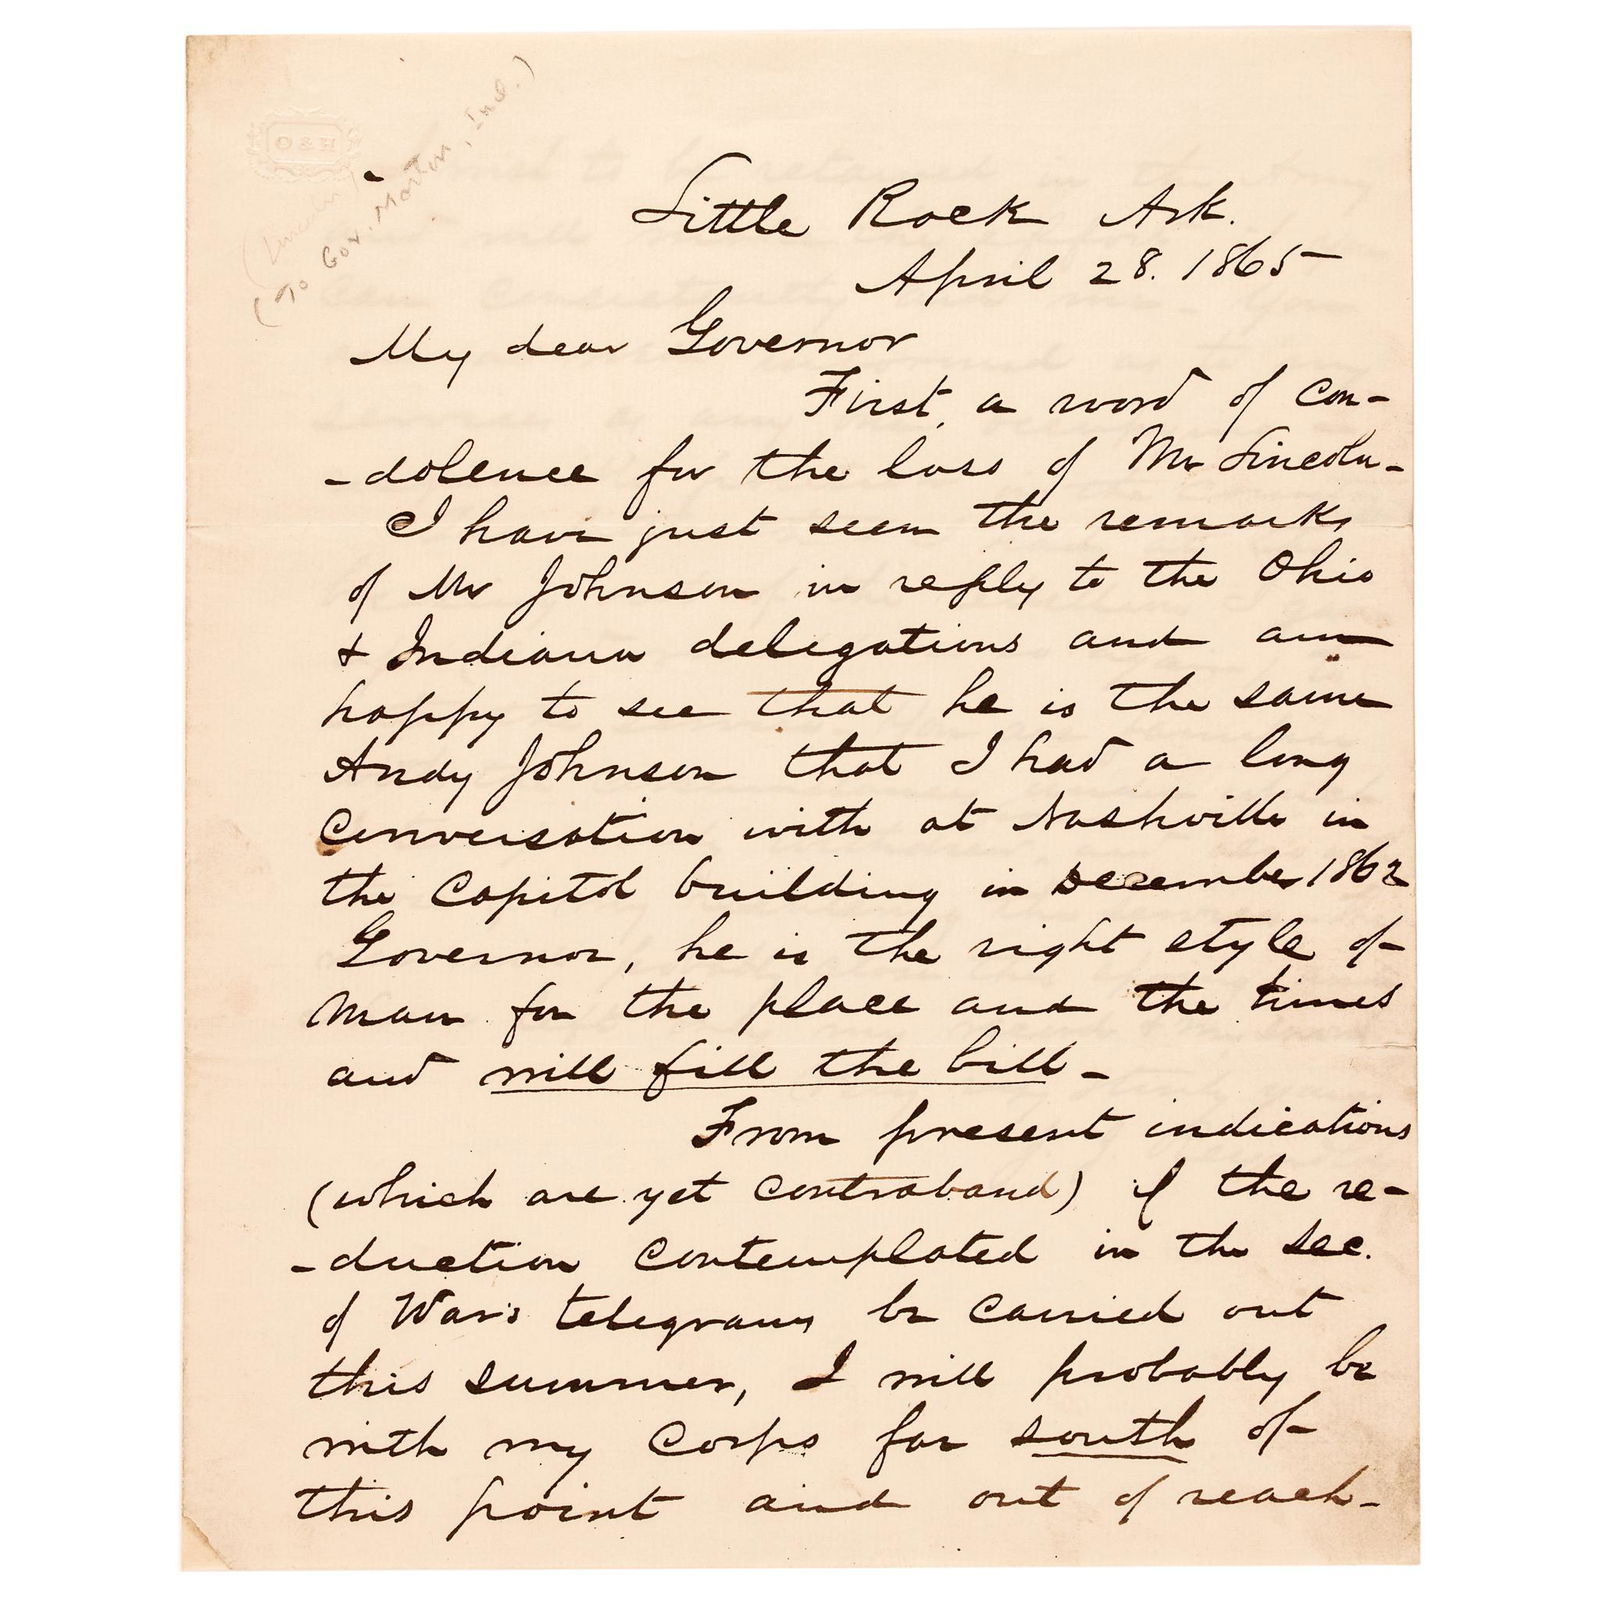 O & H
(Lincoln)
(To Gov. Morton, Ind.)
Little Rock Ark.
April 28. 1865
My dear Governor
First, a word of con-
-dolence for the loss of Mr Lincoln-
I have just seen the remarks
of Mr Johnson in reply to the Ohio
& Indiana delegations and am
happy to see that he is the same
Andy Johnson that I had a long
conversation with at Nashville in
the Capitol building in December 1862
Governor, he is the right style of
man for the place and the times
and will fill the bill-
From present indications
(which are yet contraband) if the re-
-duction contemplated in the Sec.
of War's telegrams be carried out
this summer, I will probably be
with my Corps far south of
this point and out of reach-